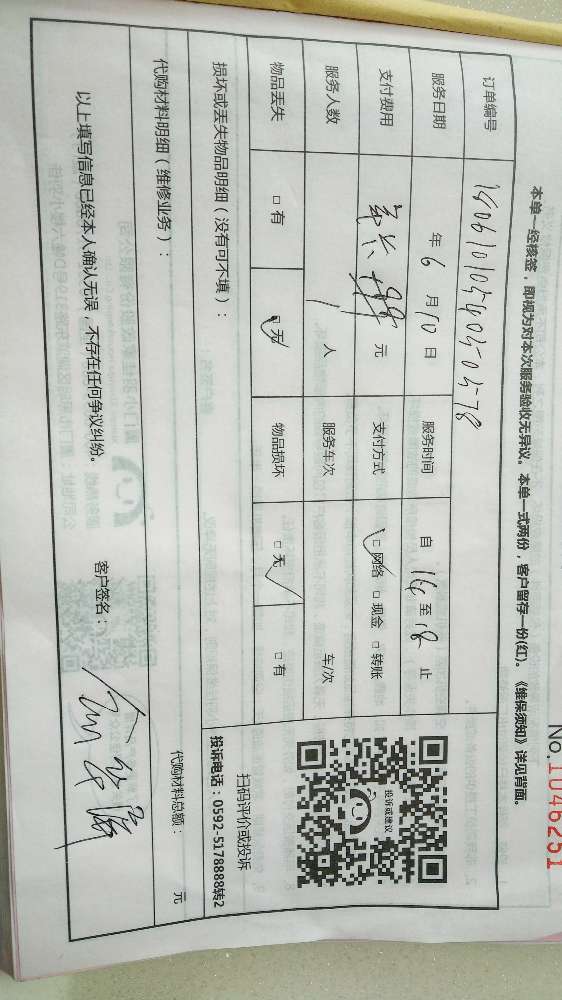 No.1046251
本单一经核签，即视为对本次服务验收无异议。本单一式两份，客户留存一份(红)。《维保须知》详见背面。
订单编号
服务日期 年 6 月 10 日 服务时间 自 16 至 18 止
支付费用 元 支付方式 □网络 □现金 □转账
服务人数 1 人 服务车次 车/次
物品丢失 □有 □无 物品损坏 □无 □有
投诉或建议
扫码评价或投诉
投诉电话：0592-5178888转2
损坏或丢失物品明细（没有可不填）：
代购材料明细（维修业务）： 代购材料总额： 元
以上填写信息已经本人确认无误，不存在任何争议纠纷。 客户签名：